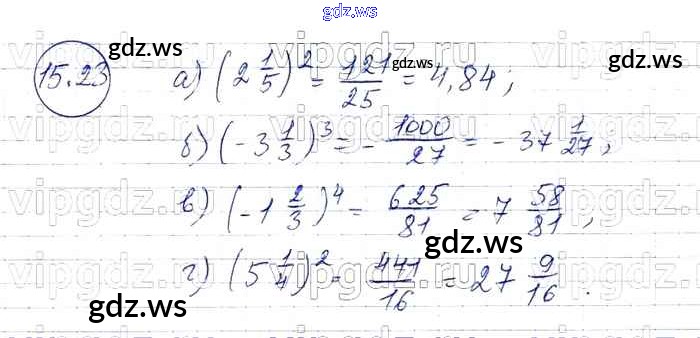 gdz.ws
15.23 gdz.ws а) (2 1/5)² = 121/25 = 4,84; gdz.ws
б) (-3 1/3)³ = - 1000/27 = - 37 1/27;
в) (-1 2/3)⁴ = 625/81 = 7 58/81;
gdz.ws
г) (5 1/4)² = 441/16 = 27 9/16.
gdz.ws
gdz.ws
vipgdz.ru